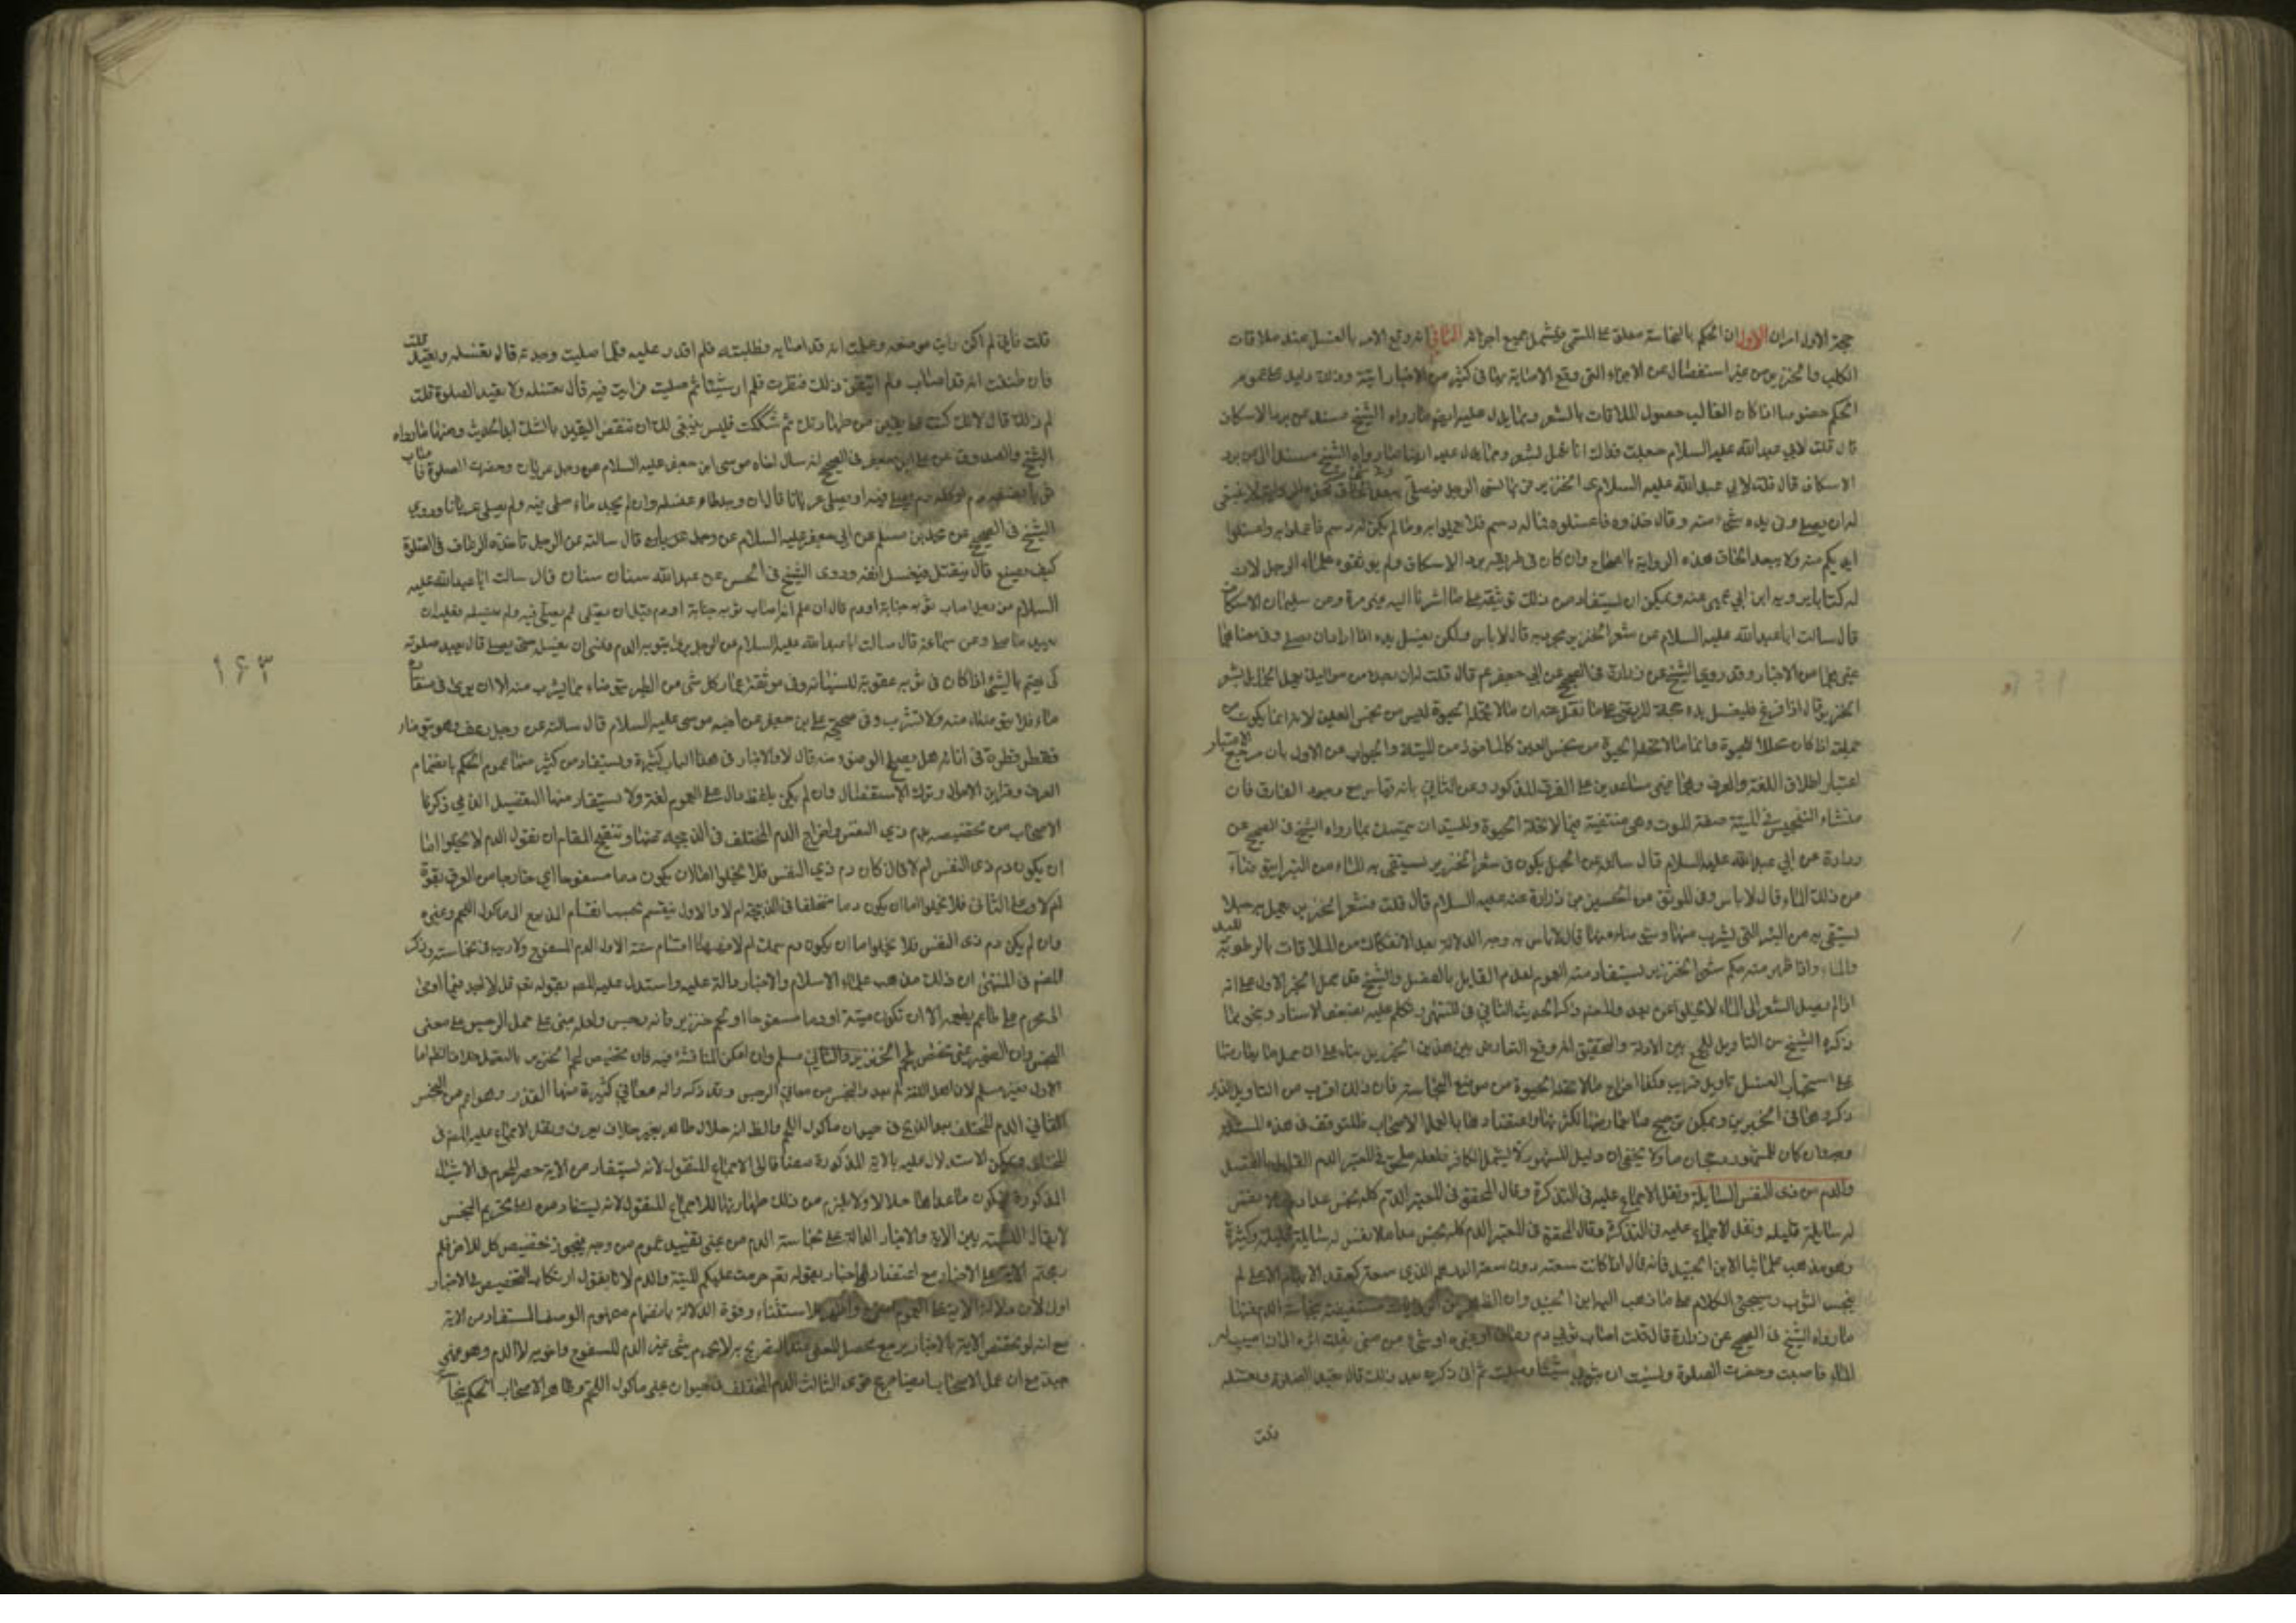 حجة الاول امران الاول ان الحكم بالنجاسة معلق على المسمى فيشمل جميع اجزائه الثاني انه وقع الامر بالغسل عند ملاقات
الكلب والخنزير من غير استفصال عن الاجزاء التي وقع الاصابة بها في كثير من الاخبار وذلك دليل على عموم
الحكم خصوصا اذا كان الغالب حصول الملاقات بالشعر ومما يدل عليه ايضا ما رواه الشيخ مسندا عن برد الاسكاف
قال قلت لابي عبدالله عليه السلام جعلت فداك انا نعمل بشعر ومما يدل عليه ايضا ما رواه الشيخ مسندا الى برد
الاسكاف قال قلت لابي عبدالله عليه السلام الخنزير الرجل فيصلي لا ينبغي
له ان يصلي وفي يده شيء منه وقال خذوه فاغسلوه فما له دسم فلا تعملوا به وما لم يكن له دسم فاعملوا به واغسلوا
ايديكم منه ولا يبعد الحاق هذه الرواية بالصحاح وان كان في طريقه برد الاسكاف ولم يوثقوه علماء الرجل لان
له كتابا يرويه ابن ابي عمير عنه ويمكن ان يستفاد من ذلك توثيقه على ما اشرنا اليه غير مرة وعن سليمان الاسكاف
قال سالت اباعبدالله عليه السلام عن شعر الخنزير يخرز به قال لا باس ولكن يغسل يده اذا اراد ان يصلي وفي معناهما
غيرهما من الاخبار وقد روى الشيخ عن زرارة في الصحيح عن ابي جعفر ع قال قلت له ان رجلا من مواليك يعمل الحمائل بشعر
الخنزير قال اذا فرغ فليغسل يده حجة المرتضى على ما نقل عنه ان ما لا تحله الحيوة ليس من نجس العين لانه انما يكون من
جملته اذا كان محلا للحيوة وانما ما لا تحله الحيوة من نجس العين كالماخوذ من الميتة والجواب عن الاول بان مرجع الاعتبار
اعتبار اطلاق اللغة والعرف وهما غير مساعدين على الفرق المذكور وعن الثاني بانه قياس مع وجود الفارق فان
منشاء التنجيس في الميتة صفة الموت وهي منتفية فيما لا تحله الحيوة وللسيد ان يتمسك بما رواه الشيخ في الصحيح عن
زرارة عن ابي عبدالله عليه السلام قال سالته عن الحبل يكون في شعر الخنزير يستقى به الماء من البئر ايتوضا
من ذلك الماء قال لا باس وفي الموثق عن الحسين بن زرارة عنه عليه السلام قال قلت فشعر الخنزير يعمل به حبلا
يستقى به من البئر التي يشرب منها ويتوضاء منها قال لا باس به وجه الدلالة بعد الانفكاك من الملاقات بالرطوبة
والماء واذا ظهر منه حكم شعر الخنزير يستفاد منه العموم لعدم القايل بالفصل والشيخ ره حمل الخبر الاول على انه
اذا لم يصل الشعر الى الماء لا يخلوا عن بعد والمصنف ذكر الحديث الثاني في المنتهى وتكلم عليه بضعف الاسناد ونحو ما
ذكره الشيخ من التاويل للجمع بين الادلة والتحقيق انه وقع التعارض بين هذين الخبرين بناء على ان حمل ما يعارضهما
على استحباب الغسل تاويل قريب فكذا اخراج ما لا تحله الحيوة من موضع النجاسة فان ذلك اقرب من التاويل الذي
ذكره هنا في الخبرين ويمكن ترجيح ما يعارضهما لكثرتها واعتضادها بالعمل الاصحاب فللتوقف في هذه المسئلة
وجه وان كان للمشهور رجحان ما ولا يخفى ان دليل المشهور لا يشمل الكافر فلعله ملحق
والدم من ذي النفس السايلة ونقل الاجماع عليه في التذكرة وقال المحقق في المعتبر الدم كله نجس عدا دم ما لا نفس
له سايلة قليله ونقل الاجماع عليه في التذكرة وقال المحقق في المعتبر الدم كله نجس عدا ما لا نفس له سايلة قليله وكثيره
وهو مذهب علمائنا الا ابن الجنيد فانه قال اذا كانت سعته دون سعة الدرهم الذي سعته كعقد الابهام الاعلى لم
ينجس الثوب وسيجيء الكلام على ما ذهب اليه ابن الجنيد وان الظاهر من الروايات مستفيضة بنجاسة الدم فمنها
ما رواه الشيخ في الصحيح عن زرارة قال قلت اصاب ثوبي دم رعاف او غيره او شيء من مني فعلمت اثره الى ان اصيب له
الماء فاصبت وحضرت الصلوة ونسيت ان بثوبي شيئا وصليت ثم اني ذكرت بعد ذلك قال تعيد الصلوة وتغسله
قلت
قلت فاني لم اكن رايت موضعه وعلمت انه قد اصابه فطلبته فلم اقدر عليه فلما صليت وجدته قال تغسله وتعيد قلت
فان ظننت انه قد اصابه ولم اتيقن ذلك فنظرت فلم ار شيئا ثم صليت فرايت فيه قال تغسله ولا تعيد الصلوة قلت
لم ذلك قال لانك كنت على يقين من طهارتك ثم شككت فليس ينبغي لك ان تنقض اليقين بالشك ابدا الحديث ومنها ما رواه
الشيخ والصدوق عن علي ابن جعفر في الصحيح انه سال اخاه موسى ابن جعفر عليه السلام عن رجل عريان وحضرت الصلوة فاصاب
ثوبا نصفه دم او كله دم يصلي فيه او يصلي عريانا قال ان وجد ماء غسله وان لم يجد ماء صلى فيه ولم يصل عريانا وروى
الشيخ في الصحيح عن محمد بن مسلم عن ابي جعفر عليه السلام قال سالته عن الرجل تاخذه الرعاف في الصلوة
كيف يصنع قال ينفتل فيغسل انفه وروى الشيخ في الحسن عن عبدالله سنان سنان قال سالت ابا عبدالله عليه
السلام عن رجل اصاب ثوبه جنابة او دم قال ان علم انه اصاب ثوبه جنابة او دم قبل ان يصلي ثم يصلي فيه ولم يغسله فعليه ان
يعيد ما صلى وعن سماعة قال سالت ابا عبدالله عليه السلام عن الرجل يرى بثوبه الدم فنسي ان يغسله حتى يصلي قال يعيد صلوته
كي يهتم بالشيء اذا كان في ثوبه عقوبة لنسيانه وفي موثقة عمار كل شيء من الطير يتوضاء مما يشرب منه الا ان يرى في منقاره
ماء فلا يتوضاء منه ولا تشرب وفي صحيحة علي بن جعفر عن اخيه موسى عليه السلام قال سالته عن رجل رعف وهو يتوضاء
فقطر قطرة في انائه هل يصلح الوضوء منه قال لا والاخبار في هذا الباب كثيرة ويستفاد من كثير منها عموم الحكم بانضمام
العرف وقراين الاحوال وترك الاستفصال وان لم يكن بلفظ دال على العموم لغة ولا يستفاد منها التفصيل الذي ذكره
الاصحاب من تخصيصه بدم ذي النفس واخراج الدم المتخلف في الذبيحة وتنقيح المقام ان نقول الدم لا يخلوا اما
ان يكون دم ذي النفس ام لا فان كان دم ذي النفس فلا يخلوا اما ان يكون دما مسفوحا اي خارجا من العرق بقوة
ام لا وعلى الثاني فلا يخلوا اما ان يكون دما متخلفا في الذبيحة ام لا والاول ينقسم بحسب انقسام الذبيح الى ماكول اللحم وغيره
وان لم يكن دم ذي النفس فلا يخلوا اما ان يكون دم سمك ام لا فههنا اقسام ستة الاول الدم المسفوح ولا ريب في نجاسته وذكر
المصنف في المنتهى ان ذلك مذهب علماء الاسلام والاخبار دالة عليه واستدل عليه المصنف بقوله تعالى قل لا اجد فيما اوحي
الي محرم على طاعم يطعمه الا ان تكون ميتة او دما مسفوحا او لحم خنزير فانه رجس ولعله مبني على حمل الرجس على معنى
النجس وان الضمير غير مختص بلحم الخنزير والثاني مسلم وان امكن المناقشة فيه فان تخصيص لحم الخنزير بالتعليل خلاف الظاهر اما
الاول غير مسلم لان اهل اللغة لم يعد والنجس من معاني الرجس وقد ذكر واله معاني كثيرة منها القذر وهو اعم من النجس
الثاني الدم المتخلف بعد الذبح في حيوان ماكول اللحم والظاهر انه حلال طاهر بغير خلاف يعرف ونقل الاجماع عليه المصنف في
المختلف ويمكن الاستدلال عليه بالاية المذكورة مضافا الى الاجماع المنقول لانه يستفاد من الاية حصر المحرم في الاشياء
المذكورة فيكون ما عداها حلالا ولا يلزم من ذلك طهارتها للاجماع المنقول لانه يستفاد من ادلة تحريم النجس
لا يقال النسبة بين الاية والاخبار الدالة على نجاسة الدم من غير تقييد عموم من وجه فيجوز تخصيص كل للاخر فلم
رجحتم الاية على الاخبار مع اعتضاد الاخبار بقوله تعالى حرمت عليكم الميتة والدم لانا نقول ارتكاب التخصيص في الاخبار
اولى لان دلالة الاية على العموم للاستثناء وقوة الدلالة بانضمام مفهوم الوصف المستفاد من الاية
مع انه لو تخصص الاية بالاخبار يرجع محصل المعنى بعد التصريح به لا يحرم شيء غير الدم المسفوح وما ضربه لا الدم وهو غير
جيد مع ان عمل الاصحاب ايضا مرجح قوي الثالث الدم المتخلف في حيوان غير ماكول اللحم وظاهر الاصحاب الحكم بنجاسته
١٦٣